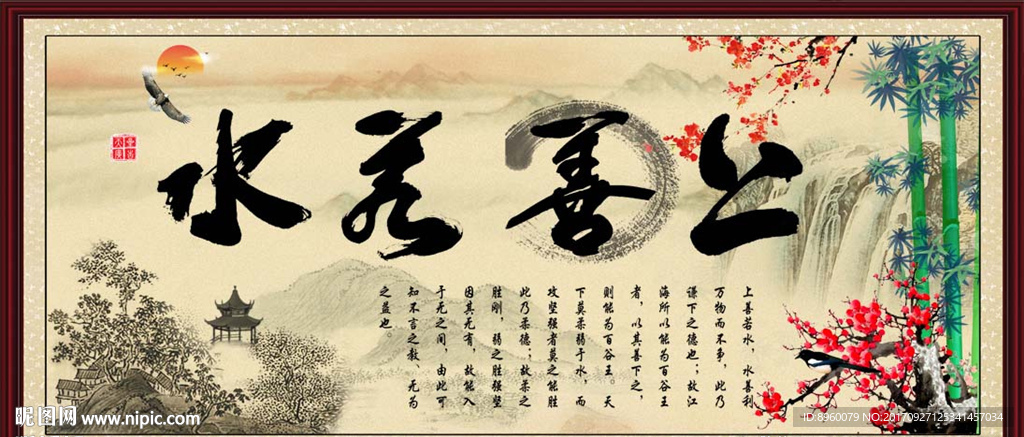 上善若水
上善若水，水善利
万物而不争，此乃
谦下之德也；故江
海所以能为百谷王
者，以其善下之，
则能为百谷王。天
下莫柔弱于水，而
攻坚强者莫之能胜
此乃柔德；故柔之
胜刚，弱之胜强坚
因其无有，故能入
于无之间，由此可
知不言之教、无为
之益也。
昵图网 www.nipic.com
ID:8960079 NO:20170927125341457034